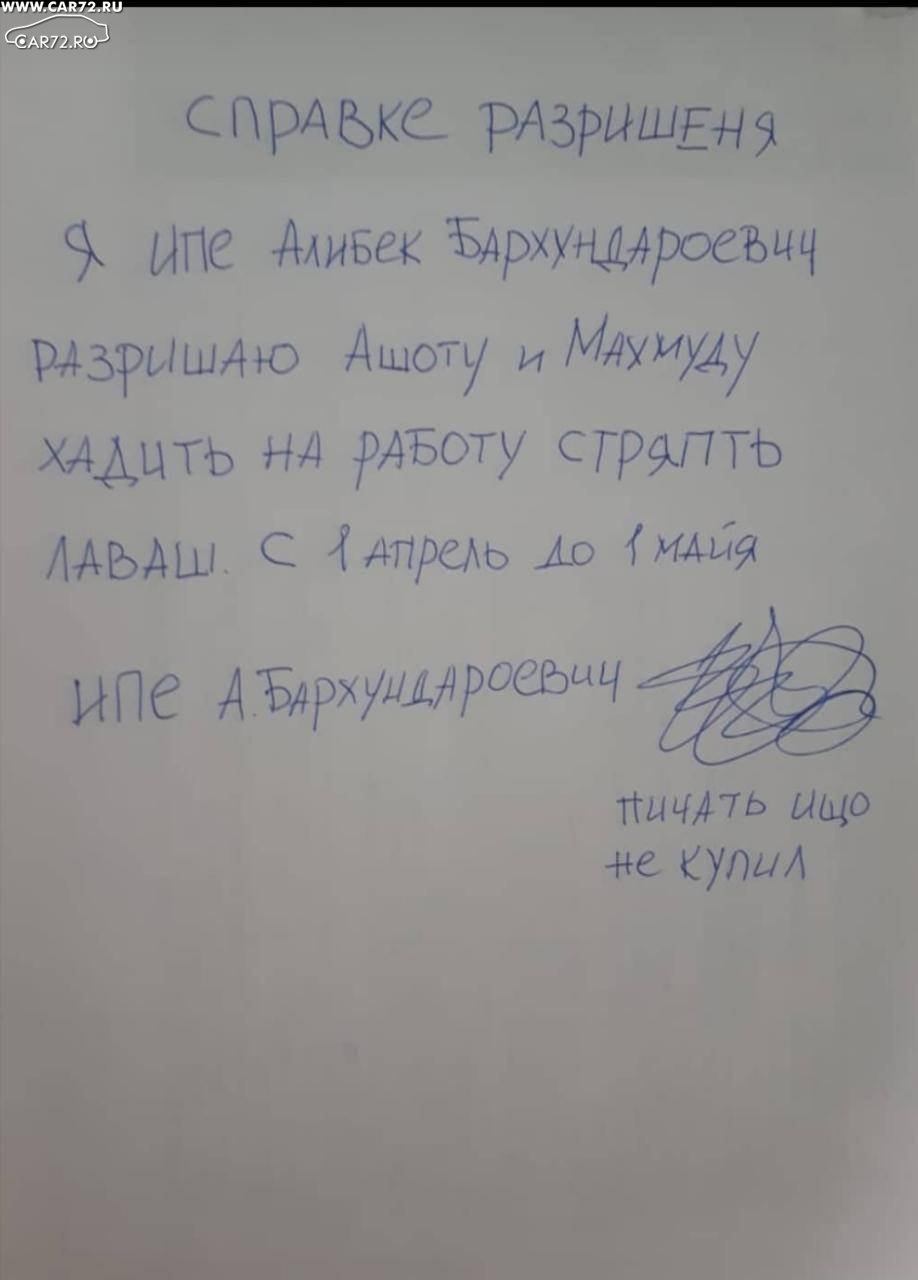 WWW.CAR72.RU
CAR72.RU
СПРАВКЕ РАЗРИШЕНЯ
Я ИПЕ АЛИБЕК БАРХУНДАРОЕВИЧ
РАЗРИШАЮ АШОТУ И МАХМУДУ
ХАДИТЬ НА РАБОТУ СТРЯПТЬ
ЛАВАШ. С 1 АПРЕЛЬ ДО 1 МАЙЯ
ИПЕ А.БАРХУНДАРОЕВИЧ
ПИЧАТЬ ИЩО
НЕ КУПИЛ